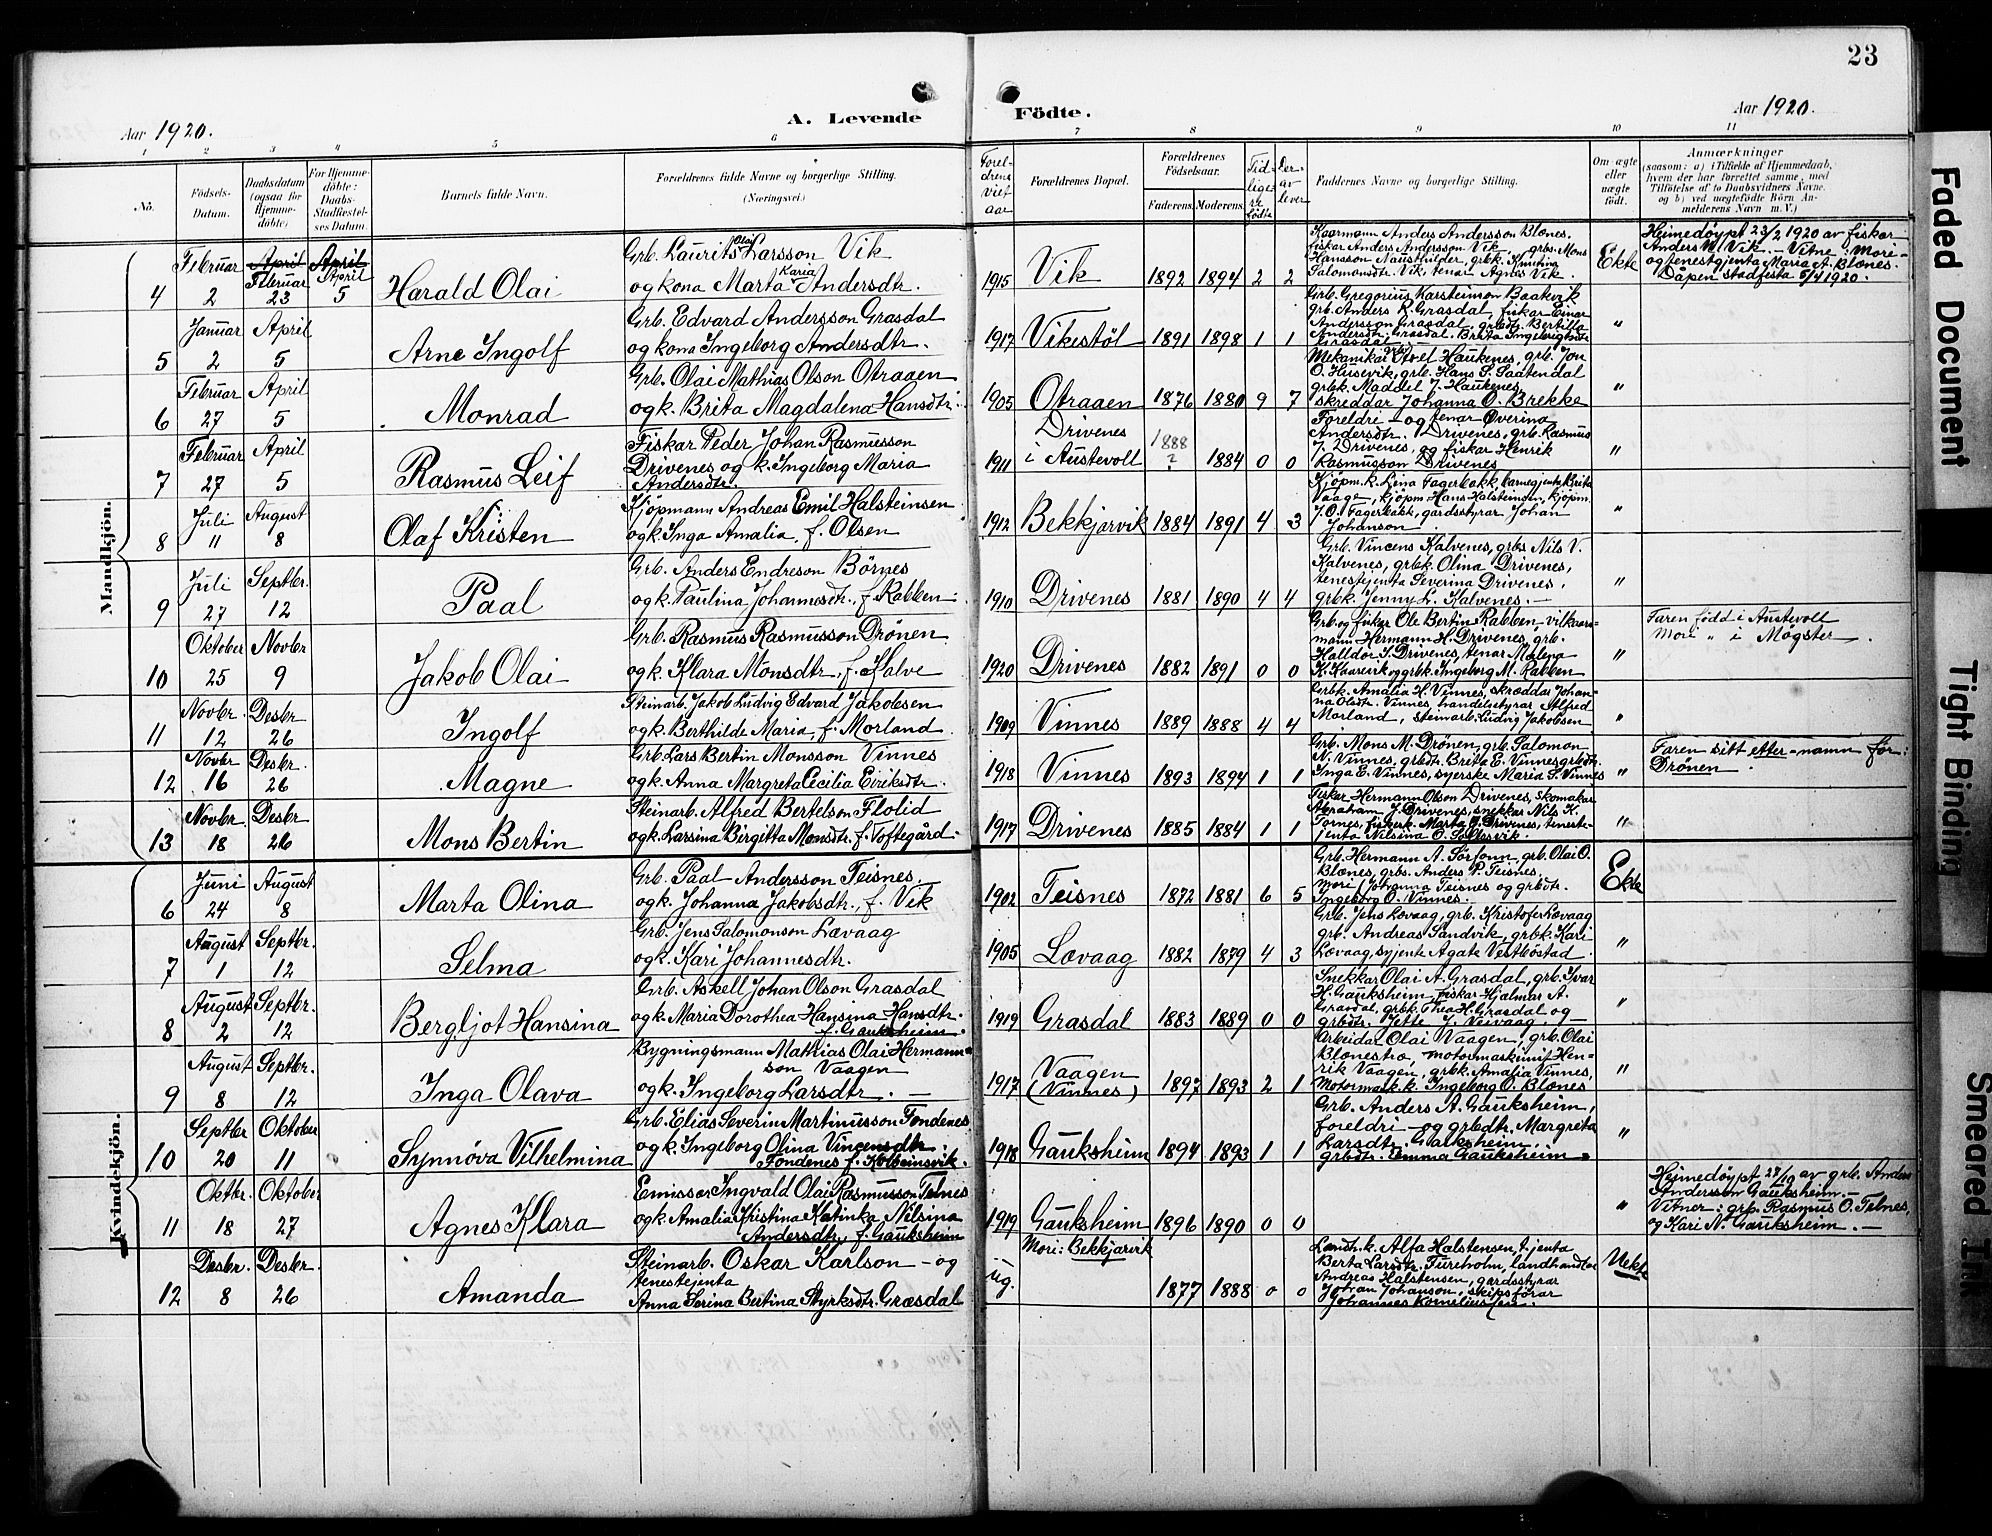 23
Aar 1920.
A. Levende
Födte.
Aar 1920.
1 2 3 4 5 6 7 8 9 10 11
No.
Födsels-Datum.
Daabsdatum (ogsaa for Hjemme-döbte)
For Hjemme-döbte: Daabs-Stadfæstel-ses Datum.
Barnets fulde Navn.
Forældrenes fulde Navne og borgerlige Stilling.
(Næringsvei.)
Foreldrens Viet aar
Forældrenes Bopæl.
Forældrenes Födselsaar.
Faderens. Moderens.
Tidligere födte
Derav lever
Faddernes Navne og borgerlige Stilling.
Om ægte eller uægte födt.
Anmærkninger
(saasom: a) i Tilfælde af Hjemmedaab,
hvem der har forrettet samme, med
Tilföielse af to Daabsvidners Navne.
og b) ved uægtefödte Börn An-
melderens Navn m. V.)
Mandkjön.
4 Februar 2 April Februar 23 April April 5 Harald Olai
Grb. Laurits Olai Larsson Vik
og kona Marta Karia Andersdtr.
1915 Vik 1892 1894 2 2
Kaarmann Anders Andersson Blænes,
fiskar Anders Andersson Vik, grbs. Mons
Hansson Nausthilder, grbk. Kristina
Salomonsdtr. Vik, tenar Agnes Vik.
Ekte
Heimedøypt 23/2 1920 av fiskar
Anders Vik – Vitne: Mori –
og tenestgjenta Maria A. Blænes.
Dåpen stadfesta 5/4 1920.
5 Januar 2 April 5 Arne Ingolf
Grb. Edvard Andersson Grasdal
og kona Ingeborg Andersdtr.
1917 Vikestöl 1891 1898 1 1
Grb. Gregorius Karsteinson Baatevik
grb. Anders R. Grasdal, fiskar Einar
Andersson Grasdal, grbdt. Bertilla
Andersdtr. Grasdal. Brita Ingebrigtsdtr
Grasdal
"
6 Februar 27 April 5 Monrad
Grb. Olai Mathias Olson Otraaen
og k. Brita Magdalena Hansdtr.
1905 Otraaen 1876 1880 9 7
Mekanikar Axel Haukenes, grb. Jon
O. Husevik, grb. Hans S. Saatendal
grbk. Maddel J. Haukenes,
skreddar Johanna O. Brekke
"
7 Februar 27 April 5 Rasmus Leif
Fiskar Peder Johan Rasmusson
Drivenes og k. Ingeborg Maria
Andersdtr.
1911 Drivenes i Austevoll 1888 ? 1884 0 0
Foreldri – og tenar Øverina
Andersdtr. Drivenes, grb. Rasmus
J. Drivenes, og fiskar Henrik
Rasmusson Drivenes
"
8 Juli 11 August 8 Olaf Kristen
Kjöpmann Andreas Emil Halsteinsen
og k. Inga Amalia, f. Olsen
1912 Bekkjarvik 1884 1891 4 3
Kjöpm. k. Lina Fagerbakk, barnegjenta Brita
Vaage, kjöpm. Hans Halsteinsen, kjöpm.
J. O. Fagerbakk, gardsstyrar Johan
Johanson
"
9 Juli 27 Septbr. 12 Paal
Grb. Anders Endreson Börnes
og k. Paulina Johannesdtr., f. Rabben
1910 Drivenes 1881 1890 4 4
Grb. Vincens Kalvenes, grbs Nils V.
Kalvenes, grbk. Olina Drivenes,
tenestjenta Severina Drivenes,
grbk. Jenny L. Kalvenes.
"
10 Oktober 25 Novbr 9 Jakob Olai
Grb. Rasmus Rasmusson Drönen
og k. Klara Monsdtr., f. Kalve
1920 Drivenes 1882 1891 0 0
Grb. og fiskar Ole Bertin Rabben – vilkaars-
mann Hermann H. Drivenes, grb.
Halldor S. Drivenes, tenar Malena
K. Kaarevik og grbk. Ingeborg M. Rabben
"
Faren född i Austevoll
Mori " i Mögster
11 Novbr. 12 Desbr 26 Ingolf
Steinarb. Jakob Ludvig Edvard Jakobsen
og k. Berthilde Maria, f. Morland
1909 Vinnes 1889 1888 4 4
Grbk. Amalia H. Vinnes, skræddar Johan-
na Olsdtr. Vinnes, handelsstyrar Alfred
Morland, steinarb. Ludvig Jakobsen
"
12 Novbr 16 Desbr. 26 Magne
Grb. Lars Bertin Monsson Vinnes
og k. Anna Margreta Cecilia Eiriksdtr.
1918 Vinnes 1893 1894 1 1
Grb. Mons M. Drönen, grb. Salomon
N. Vinnes, grbdt. Brita E. Vinnes grbdt.
Inga E. Vinnes, syerske Maria S. Vinnes
"
Faren sitt etter-namn för:
Drönen
13 Novbr. 18 Desbr 26 Mons Bertin
Steinarb. Alfred Bertelson Flolid
og k. Larsina Birgitta Monsdtr. f. Toftegård
1917 Drivenes 1885 1884 1 1
Fiskar Hermann Olson Drivenes, skomakar
Abraham J. Drivenes, snekkar Nils K.
Fornes, fiskerk. Marta J. Drivenes, teneste-
jenta Nilsina O.
"
Kvindekjön.
6 Juni 24 August 8 Marta Olina
Grb. Paal Andersson Teisnes
og k. Johanna Jakobsdtr., f. Vik
1902 Teisnes 1872 1881 6 5
Grb. Hermann A. Sörfonn, grb. Olai O.
Blænes, grbs. Anders P. Teisnes,
mori Johanna Teisnes og grbdtr.
Ingeborg O. Vinnes.
Ekte
7 August 1 Septbr. 12 Selma
Grb. Jens Salomonson Lævaag
og k. Kari Johannesdtr.
1905 Lævaag 1882 1879 4 3
Grb. Jens Lovaag, grb. Kristofer Lævaag
grb. Andreas Sandvik, grbk. Kari
Lævaag, syjente Agate Vestböstad
"
8 August 2 Septbr. 12 Bergljot Hansina
Grb. Askell Johan Olson Grasdal
og k. Maria Dorothea Hansina Hansdtr.
f. Gauksheim
1919 Grasdal 1883 1889 0 0
Snekkar Olai A. Grasdal, grb. Ivar
H. Gauksheim, fiskar Hjalmar A.
Grasdal, grbk. Thea H. Grasdal og
grbdtr. Jette J. Veivaag.
"
9 August 8 Septbr. 12 Inga Olava
Bygningsmann Mathias Olai Hermann-
son Vaagen
og k. Ingeborg Larsdtr.
1917 Vaagen (Vinnes) 1897 1893 2 1
Arbeidar Olai Vaagen, grb. Olai
Blænestrø, motormaskinist Hen-
rik Vaagen, grbk. Amalia Vinnes,
Motormask. k. Ingeborg O. Blænes
"
10 Septbr 20 Oktober 11 Synnöva Vilhelmina
Grb. Elias Severin Martinusson Fondenes
og k. Ingeborg Olina Vincensdtr
Fondenes f. Kolbeinsvik.
1918 Gauksheim 1894 1893 1 1
Grb. Anders A. Gauksheim,
foreldri – og grbdtr. Margreta
Larsdtr. Gauksheim.
grbdt. Emma Gauksheim
"
11 Oktbr. 18 Oktober 27 Agnes Klara
Emissær Ingvald Olai Rasmusson Telnes
og k. Amalia Kristina Katinka Nilsina
Andersdtr., f. Gauksheim
1919 Gauksheim 1896 1890 0 0
"
Heimedöypt 27/10 av grb. Anders
Andersson Gauksheim.
Vitner: grb. Rasmus O. Telnes,
og Kari N. Gauksheim.
12 Desbr. 8 Desbr. 26 Amanda
Steinarb. Oskar Karlson – og
tenestejenta
Anna Serina Bertina Styrksdtr. Græsdal
ug. Mori: Bekkjarvik 1877 1888 0 0
Landh. k. Alfa Halstensen, tjenta
Berta Larsdtr. Tureholm, landhandlar
Andreas Halstensen, gardsstyrar
Johan Johanson, skipsförar
Johannes Korneliussen.
Uekte
Faded Document
Tight Binding
Smeared Ink